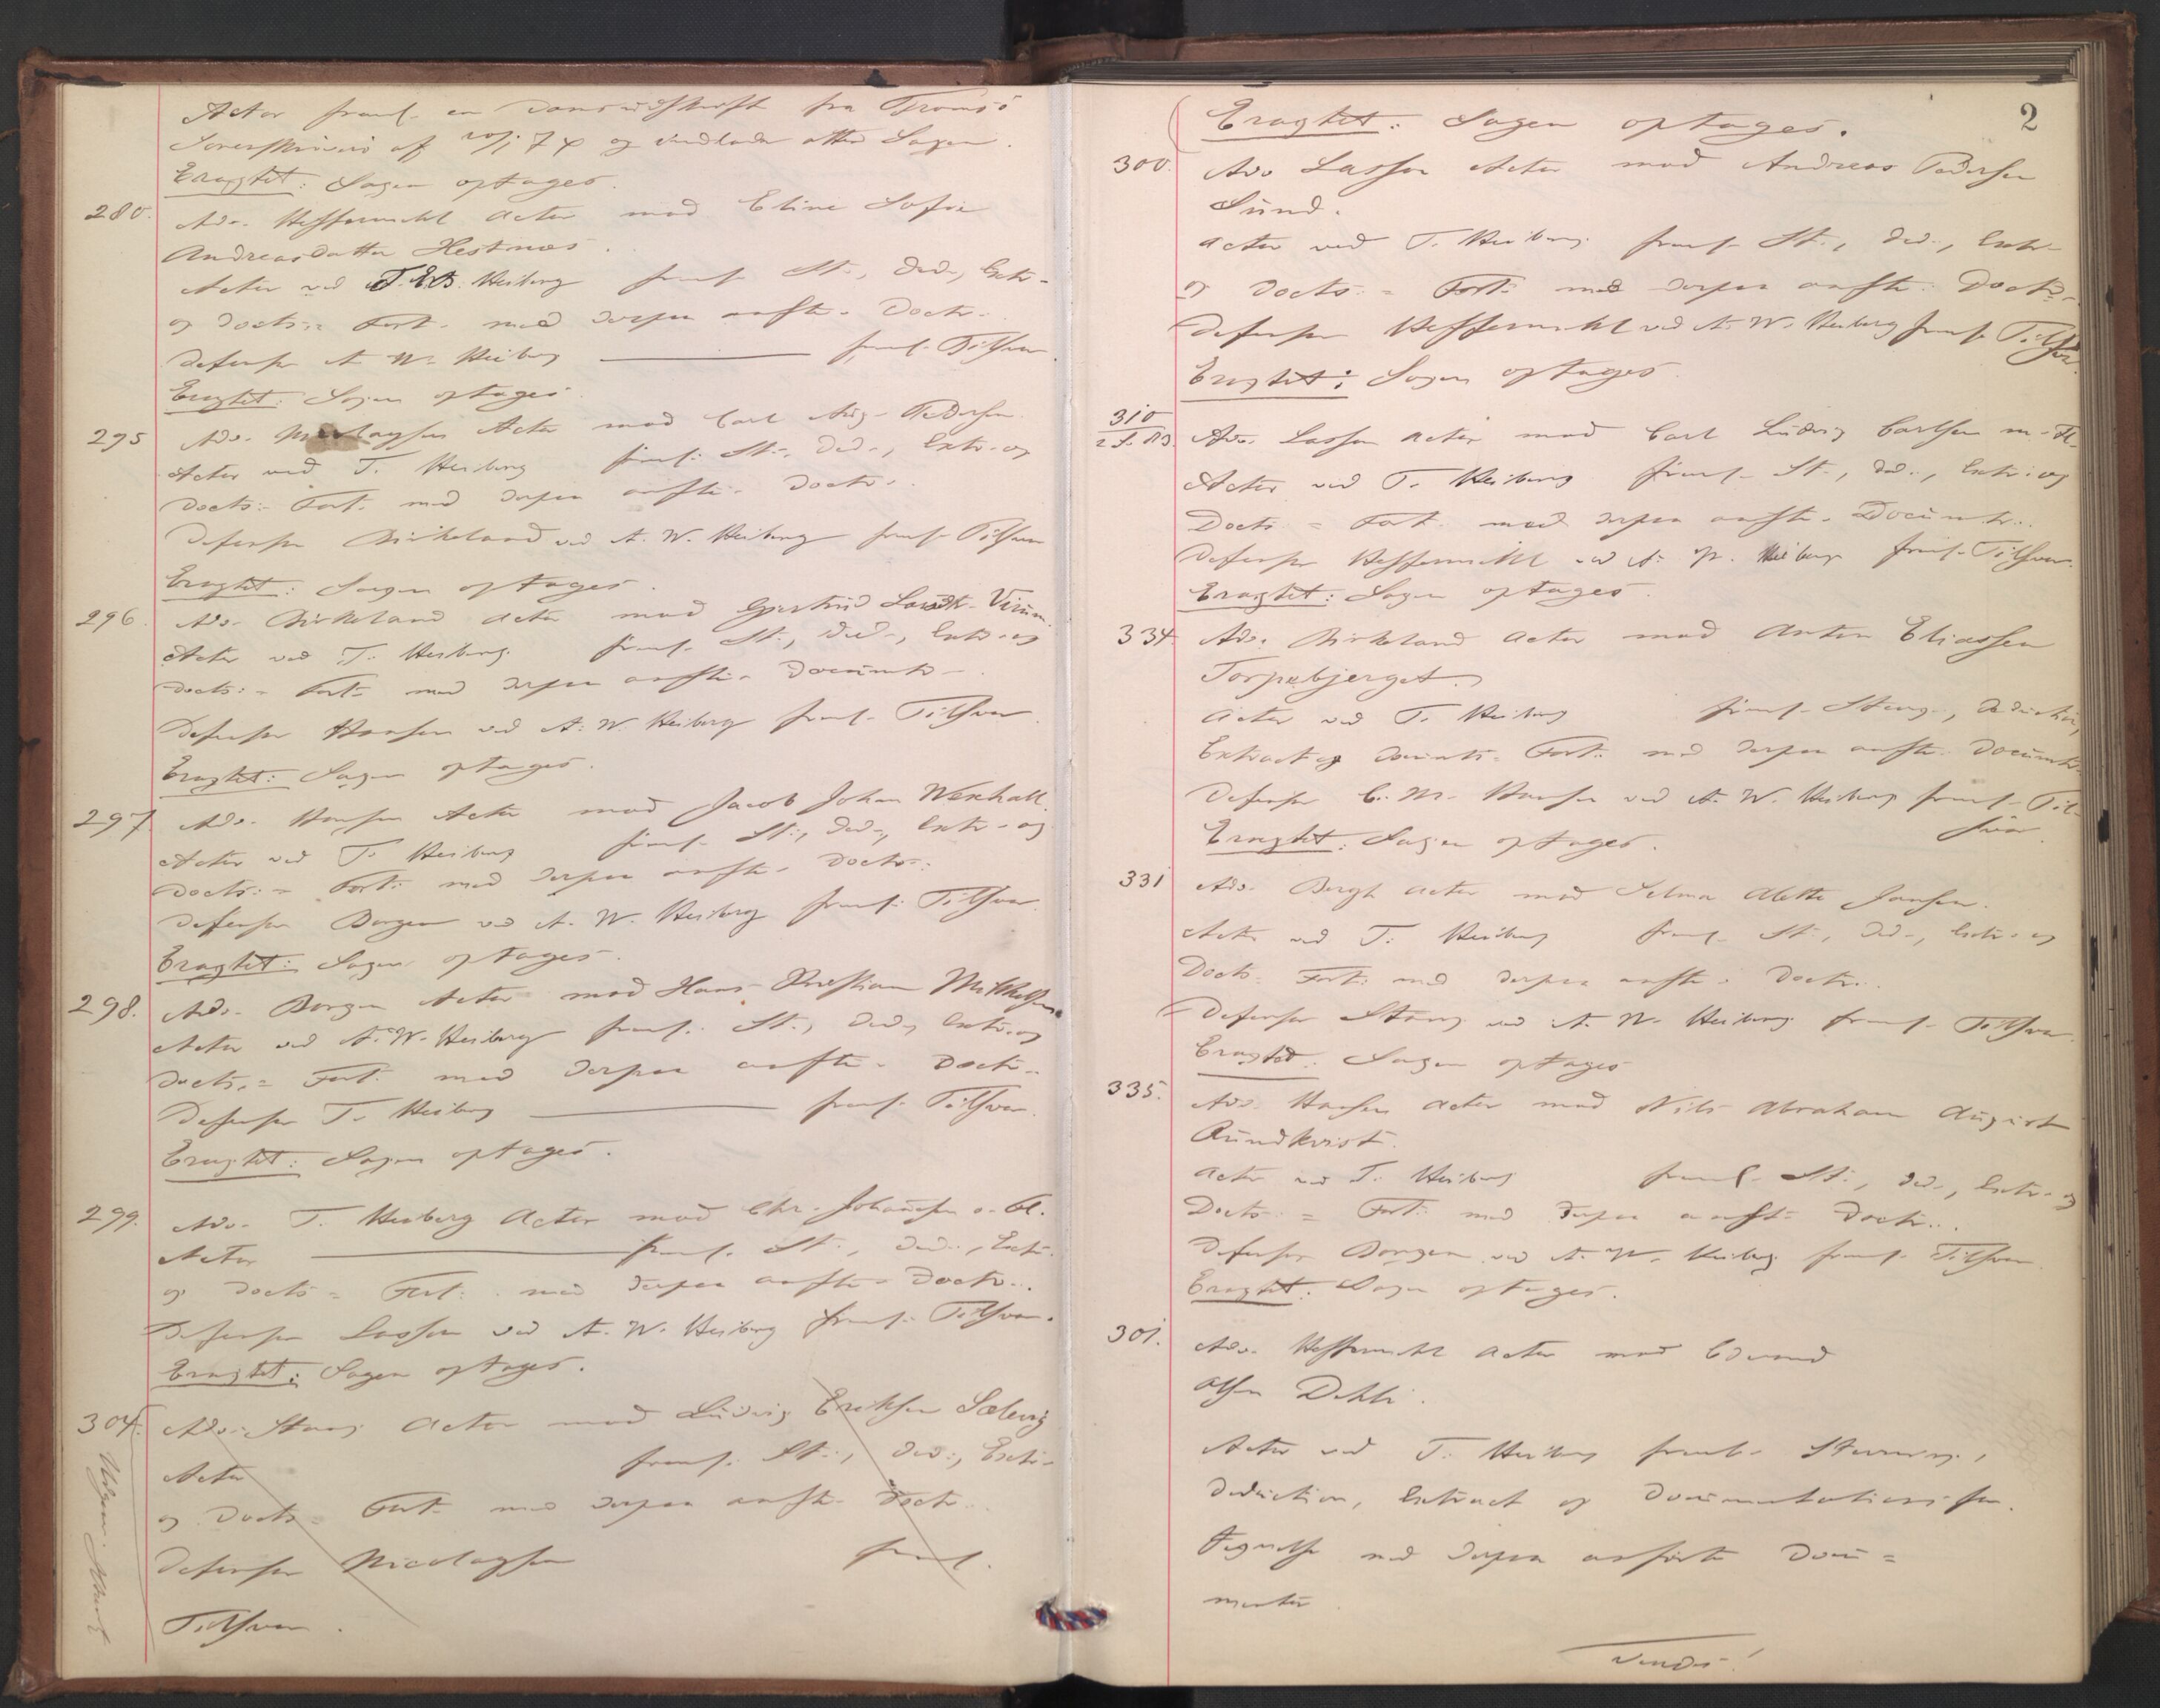 Actor freml. en Domsudskrift fra Tromsö
Sorenskriveri af og indlader atter Sagen.
Eragtet: Sagen optages.
280. Adv. Heffermehl Actor mod Eline Sofie
Andreasdatter Hestnæs.
Actor ved T. Heiberg freml. St., Ded., Extr.
og Docts.= Fort. med derpaa anfte. Doctr.
Defensor A. W. Heiberg freml. Tilsvar.
Eragtet: Sagen optages.
295 Adv. Nicolaysen Actor mod Carl Aug. Pedersen.
Actor ved T. Heiberg freml. St., Ded., Extr. og
Docts.- Fort. med derpaa anfte. Doctr.
Defensor Birkeland ved A. W. Heiberg freml. Tilsvar
Eragtet: Sagen optages.
296. Adv. Birkeland Actor mod Gjertrud Virum.
Actor ved T. Heiberg freml. St., Ded., Extr. og
Docts.= Fort. med derpaa anfte. Documtr.
Defensor Hansen ved A. W. Heiberg freml. Tilsvar.
Eragtet: Sagen optages.
297 Adv. Hansen Actor mod Jacob Johan Wexhall.
Actor ved T. Heiberg freml. St., Ded., Extr. og
Docts.= Fort. med derpaa anfte. Doctr.
Defensor Borgen ved A. W. Heiberg freml. Tilsvar.
Eragtet: Sagen optages.
298. Adv. Borgen Actor mod Hans Kristian Mikkelsen.
Actor ved A. W. Heiberg freml. St., Ded., Extr. og
Docts.= Fort. med derpaa anfte. Doctr.
Defensor T. Heiberg freml. Tilsvar.
Eragtet: Sagen optages.
299. Adv. T. Heiberg Actor mod Chr. Johansen o. Fl.
Actor freml. St., Ded., Extr.
og Docts.= Fort. med derpaa anfte. Doctr.
Defensor Lasson ved A. W. Heiberg freml. Tilsvar.
Eragtet: Sagen optages.
304. Adv. Stang Actor mod Ludvig Eriksen
Actor freml. St., Ded., Extr.
og Docts.= Fort. med derpaa anfte. Doctr.
Defensor Nicolaysen freml.
Tilsvar.
2
Eragtet: Sagen optages.
300. Adv. Lasson Actor mod Andreas Pedersen
Sund.
Actor ved T. Heiberg freml. St., Ded., Extr.
og Docts.= Fort. med derpaa anfte. Doctr.
Defensor Heffermehl ved A. W. Heiberg freml. Tilsvar
Eragtet: Sagen optages.
310 Adv. Lasson Actor mod Carl Ludvig Carlsen m. Fl.
Actor ved T. Heiberg freml. St., Ded., Extr. og
Docts.= Fort. med derpaa anfte. Documtr.
Defensor Heffermehl ved A. W. Heiberg freml. Tilsvar.
Eragtet: Sagen optages.
334. Adv. Birkeland Actor mod Anton Eliassen
Torpebjerget.
Actor ved T. Heiberg freml. Stevng., Deduction,
Extract og Documts.= Fort. med derpaa anfte. Documtr.
Defensor C. M. Hansen ved A. W. Heiberg freml. Til-
svar
Eragtet: Sagen optages.
331 Adv. Bergh Actor mod Selma Alette Jansen.
Actor ved T. Heiberg freml. St., Ded., Extr. og
Docts. Fort. med derpaa anfte. Doctr.
Defensor Stang ved A. W. Heiberg freml. Tilsvar.
Eragtet: Sagen optages
335. Adv. Hansen Actor mod Nils Abraham August
Rundkvist.
Actor ved T. Heiberg freml. St., Ded., Extr. og
Docts.= Fort. med derpaa anfte. Doctr.
Defensor Borgen ved A. W. Heiberg freml. Tilsvar.
Eragtet: Sagen optages.
301. Adv. Heffermehl Actor mod Edvard
Olsen Dehli.
Actor ved T. Heiberg freml. Stevning,
Deduction, Extract og Documentationsfor-
tegnelse med derpaa anførte Docu=
menter.
Vende!